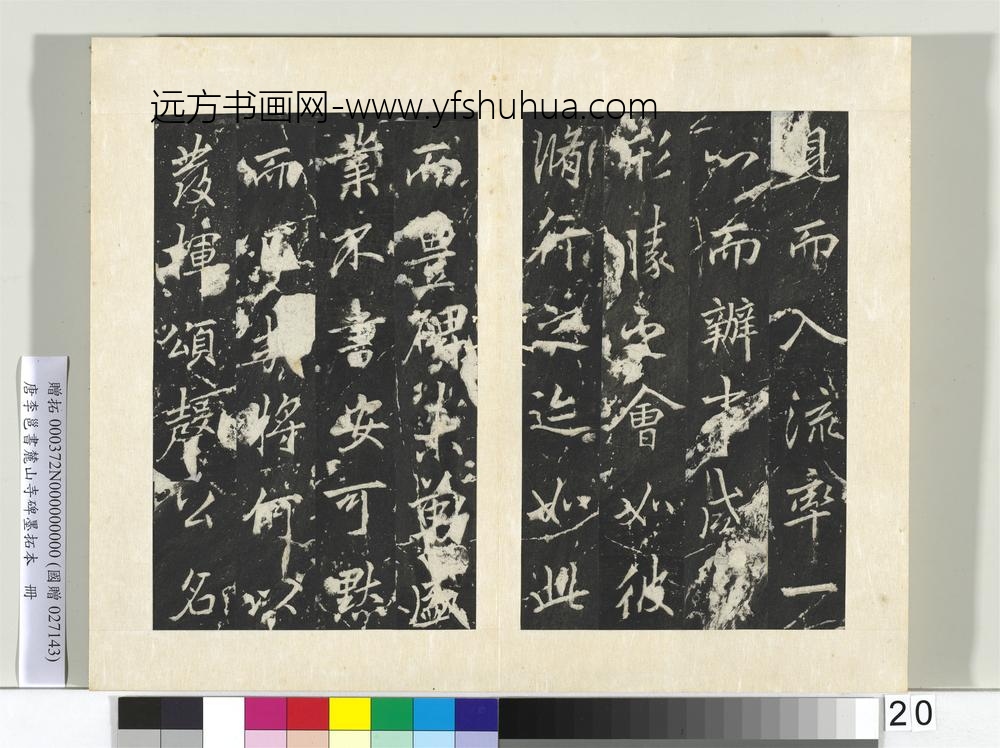 远方书画网-www.yfshuhua.com
見而入流率一
心而辦事咸
形勝要會如彼
脩行之迹如此
而豐碑未勒盛
業不書安可默
而事將何以
發揮頌聲公名
贈拓 000372N000000000 (國贈 027143)
唐李邕書麓山寺碑墨拓本 冊
20